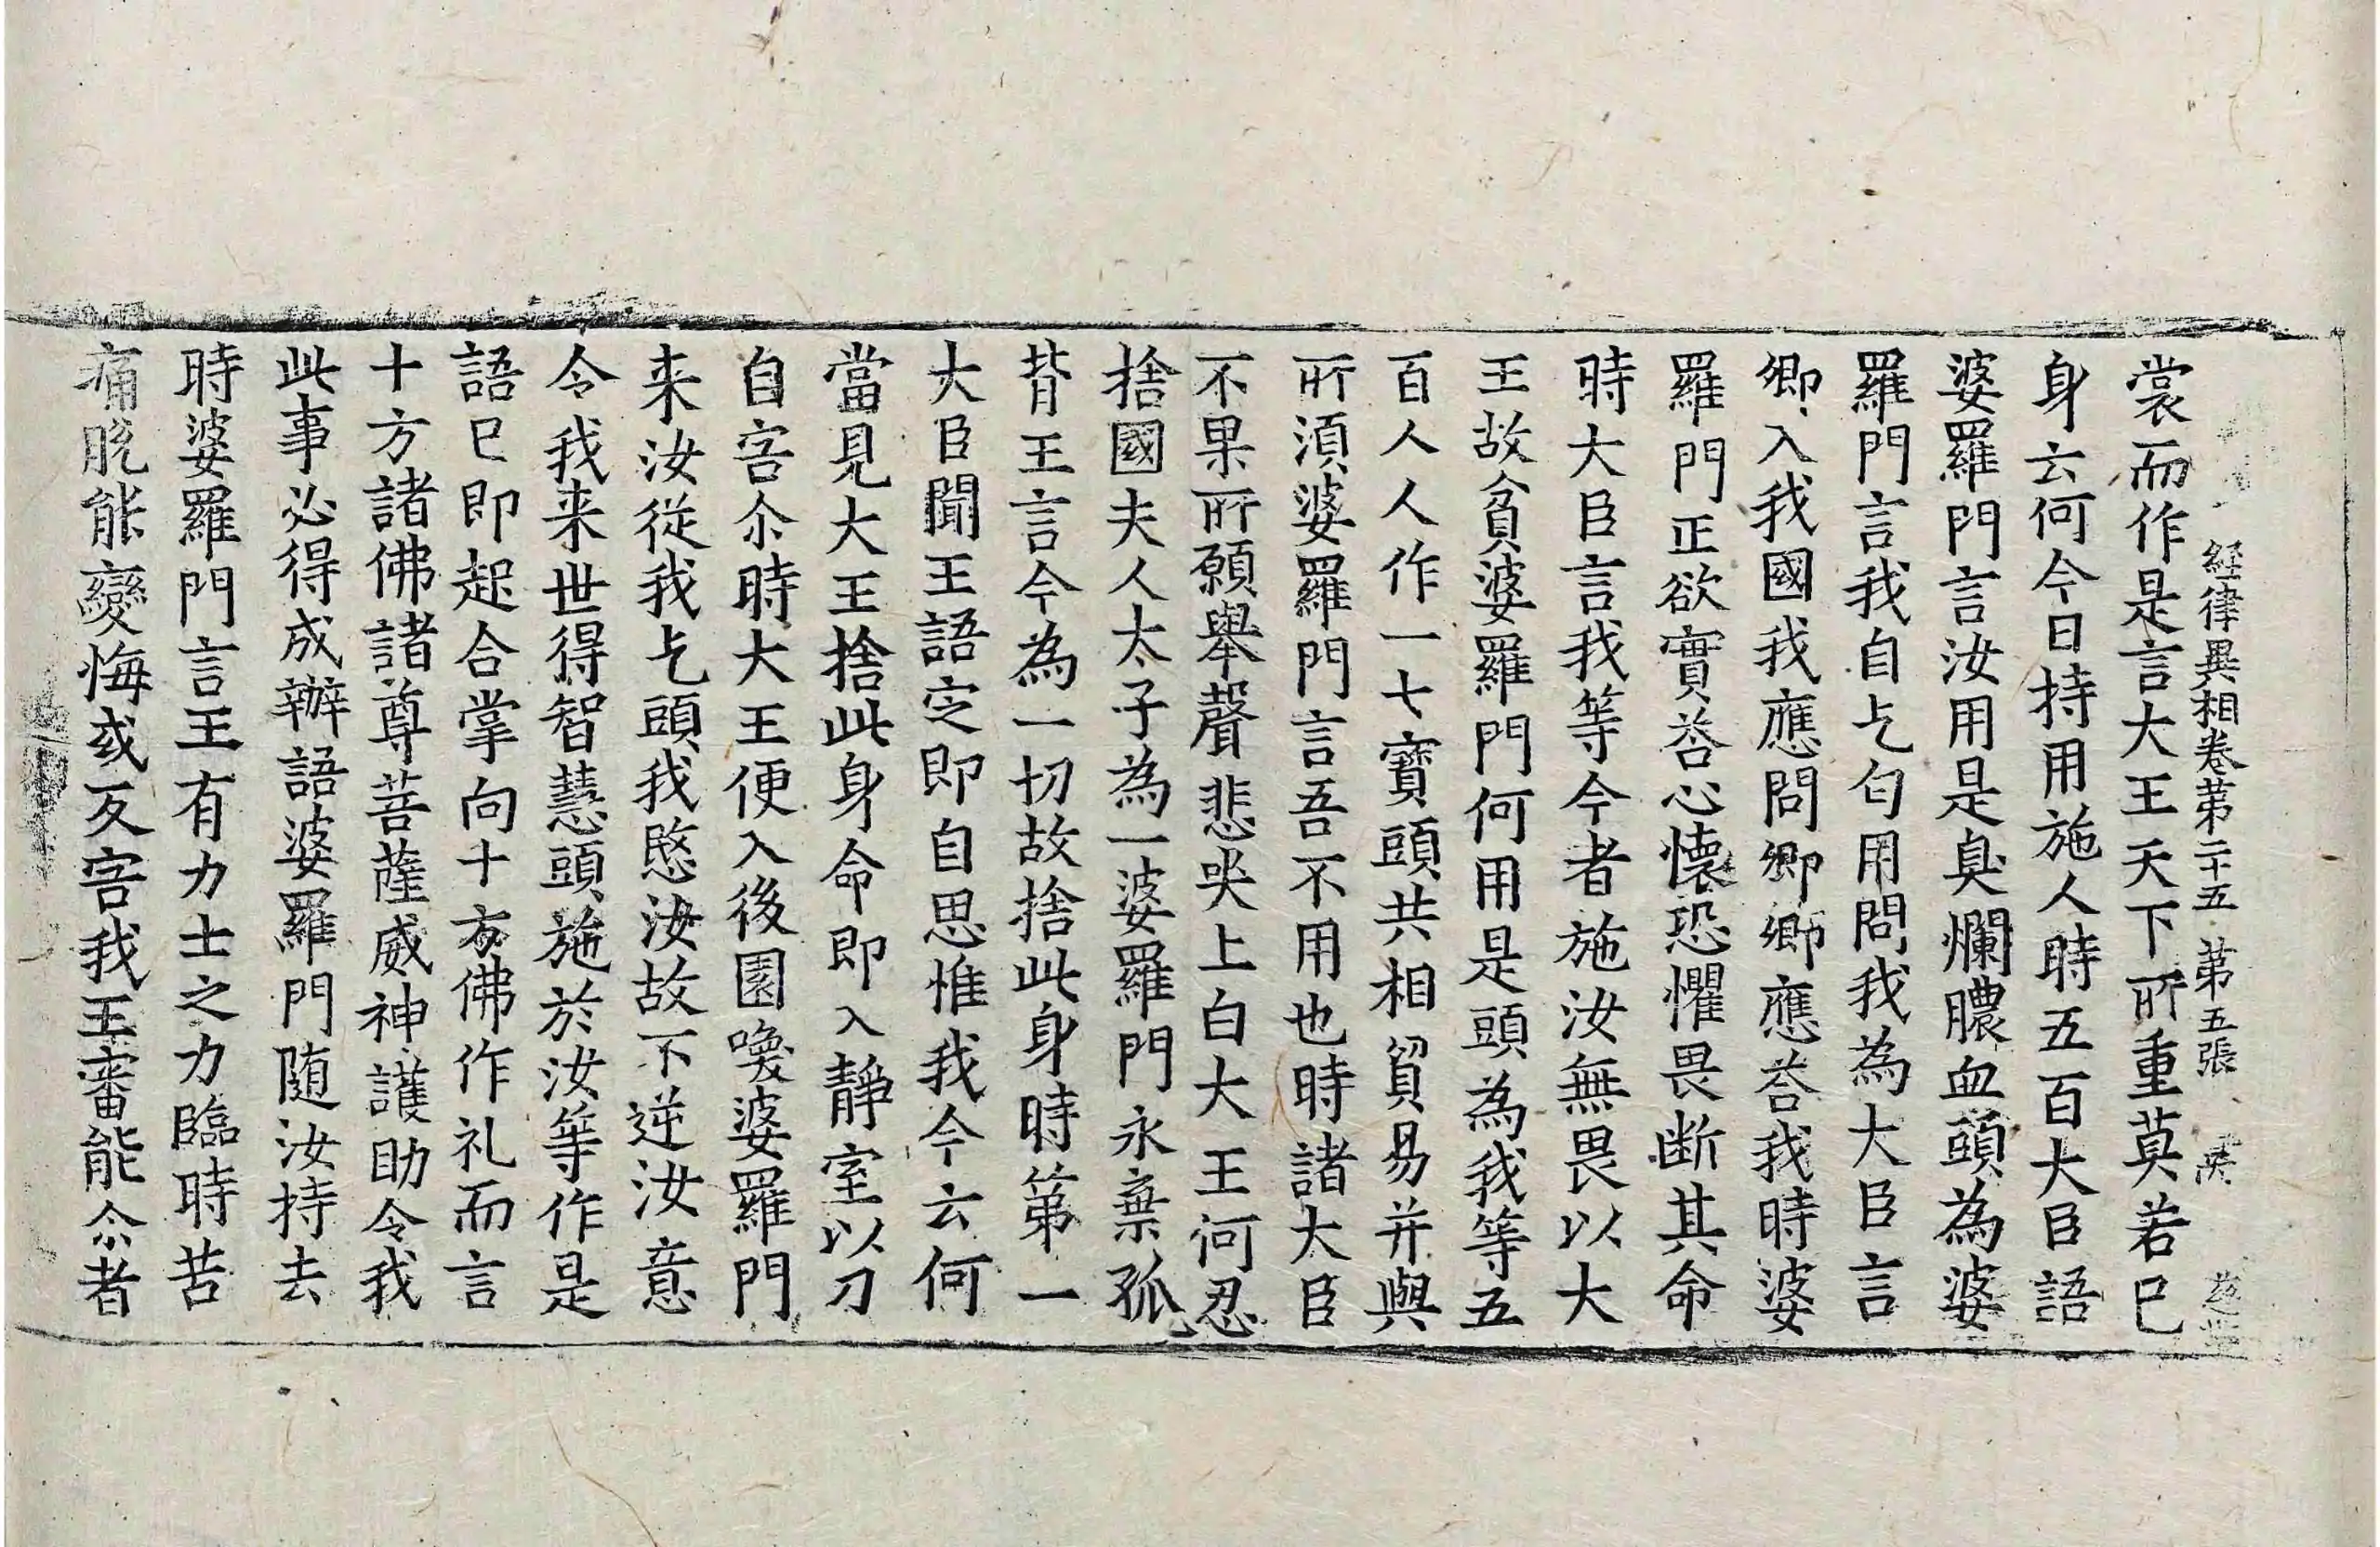 経律異相卷第二十五 第五張
裳而作是言大王天下所重莫若已
身云何今日持用施人時五百大臣語
婆羅門言汝用是臭爛膿血頭為婆
羅門言我自乞匂用問我為大臣言
卿入我國我應問卿卿應荅我時婆
羅門正欲實荅心懷恐懼畏断其命
時大臣言我等今者施汝無畏以大
王故貧婆羅門何用是頭為我等五
百人人作一七寶頭共相貿易并與
所湏婆羅門言吾不用也時諸大臣
不果所願舉聲悲哭上白大王何忍
捨國夫人太子為一婆羅門永棄孤
背王言今為一切故捨此身時第一
大臣聞王語定即自思惟我今云何
當見大王捨此身命即入靜室以刀
自害尒時大王便入後園喚婆羅門
来汝從我乞頭我愍汝故不逆汝意
令我来世得智慧頭施於汝等作是
語已即起合掌向十方佛作礼而言
十方諸佛諸尊菩薩威神護助令我
此事必得成辦語婆羅門随汝持去
時婆羅門言王有力士之力臨時苦
痛脱能變悔或反害我王審能尒者